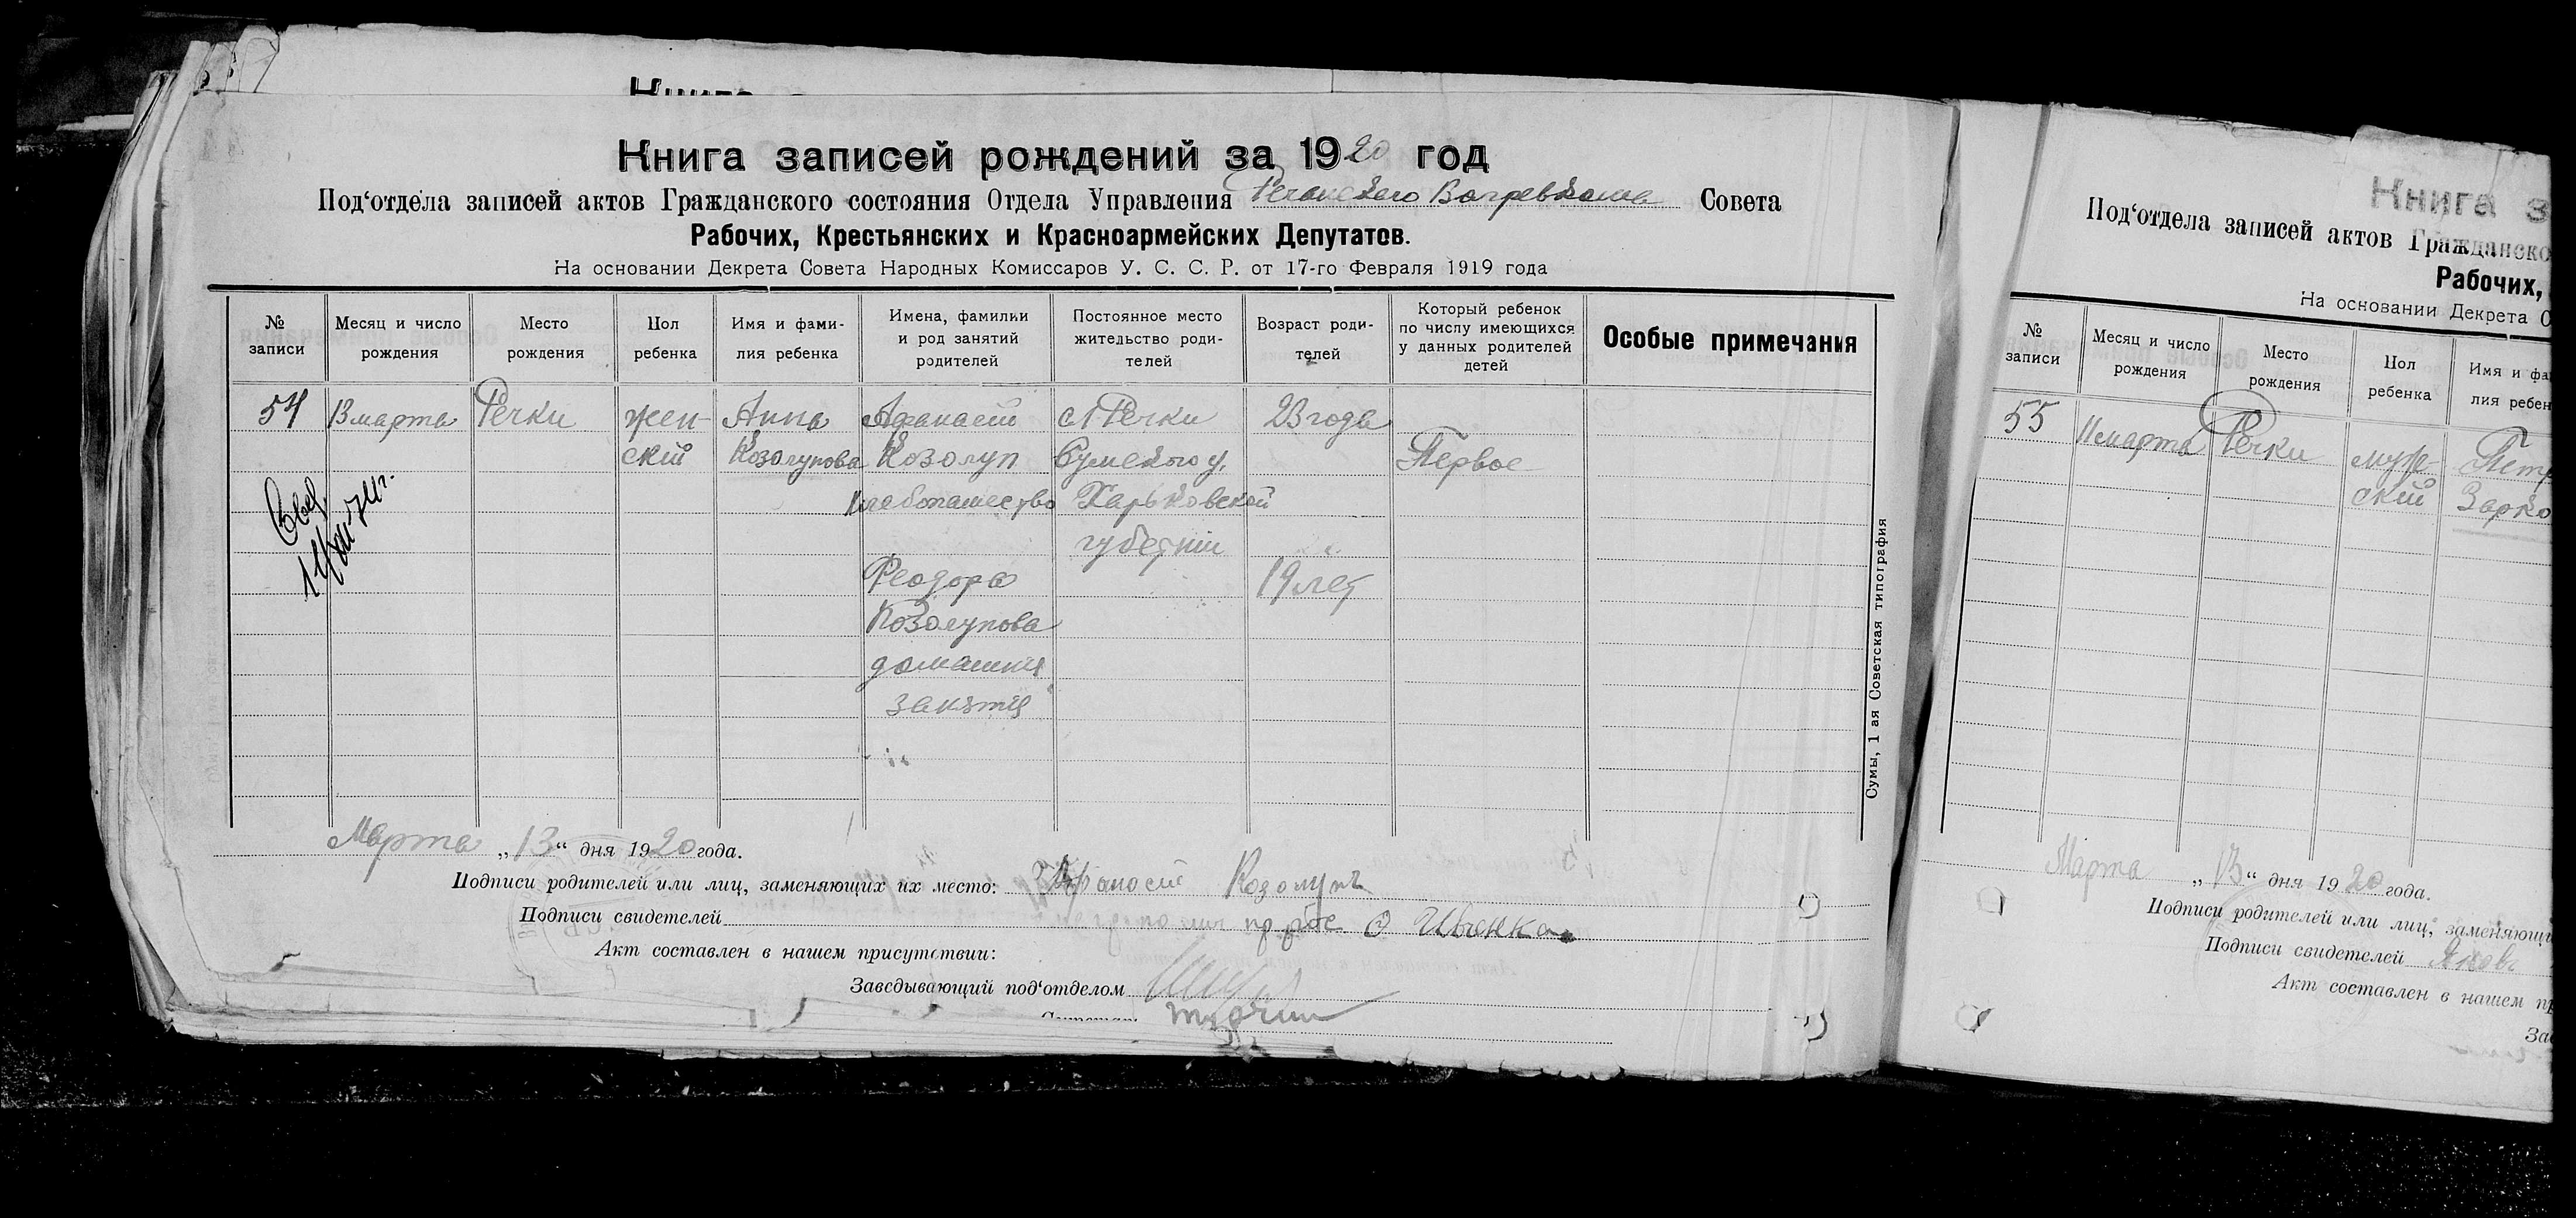 Книга записей рождений за 1920 год
Под‘отдела записей актов Гражданского состояния Отдела Управления Речанского Волревкома Совета
Рабочих, Крестьянских и Красноармейских Депутатов.
На основании Декрета Совета Народных Комиссаров У. С. С. Р. от 17-го Февраля 1919 года
№ записи
Месяц и число рождения
Место рождения
Пол ребенка
Имя и фами-
лия ребенка
Имена, фамилии
и род занятий
родителей
Постоянное место
жительство роди-
телей
Возраст роди-
телей
Который ребенок
по числу имеющихся
у данных родителей
детей
Особые примечания
54
13 марта
Речки
жен-
ский
Анна
Козолупова
Афанасий
Козолуп
хлебопашество
Феодора
Козолупова
домашния
занятия
с. Речки
Сумского у.
Харьковской
губернии
23 года
19 лет
Первое
Марта „13“ дня 1920 года.
Подписи родителей или лиц, заменяющих их место: Афанасий Козолупъ
Подписи свидетелей
Акт составлен в нашем присутствии:
Заведывающий под‘отделом
Сумы, 1 ая Советская типография
Книга з
Под‘отдела записей актов Гражданско
Рабочих,
На основании Декрета С
№ записи
Месяц и число рождения
Место рождения
Пол ребенка
Имя и фа
лия ребен
55
11 марта
Речки
муж-
ский
Петр
Зарко
Марта „13“ дня 1920 года.
Подписи родителей или лиц, заменяющи
Подписи свидетелей Яковъ
Акт составлен в нашем п
Зав